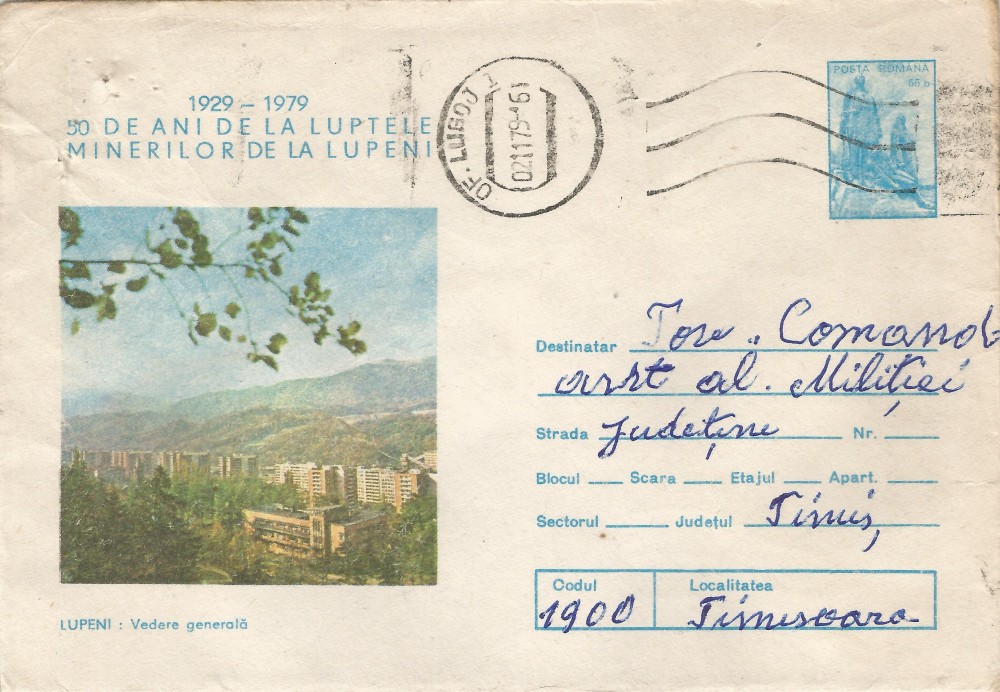 1929 – 1979
50 DE ANI DE LA LUPTELE
MINERILOR DE LA LUPENI
OF. LUGOJ 1
021179-161
POSTA ROMANA
55 b
Destinatar Tov. Comand
al. Miliției
Strada județene Nr.
Blocul Scara Etajul Apart.
Sectorul Județul Timiș
Codul Localitatea
1900 Timisoara
LUPENI : Vedere generală